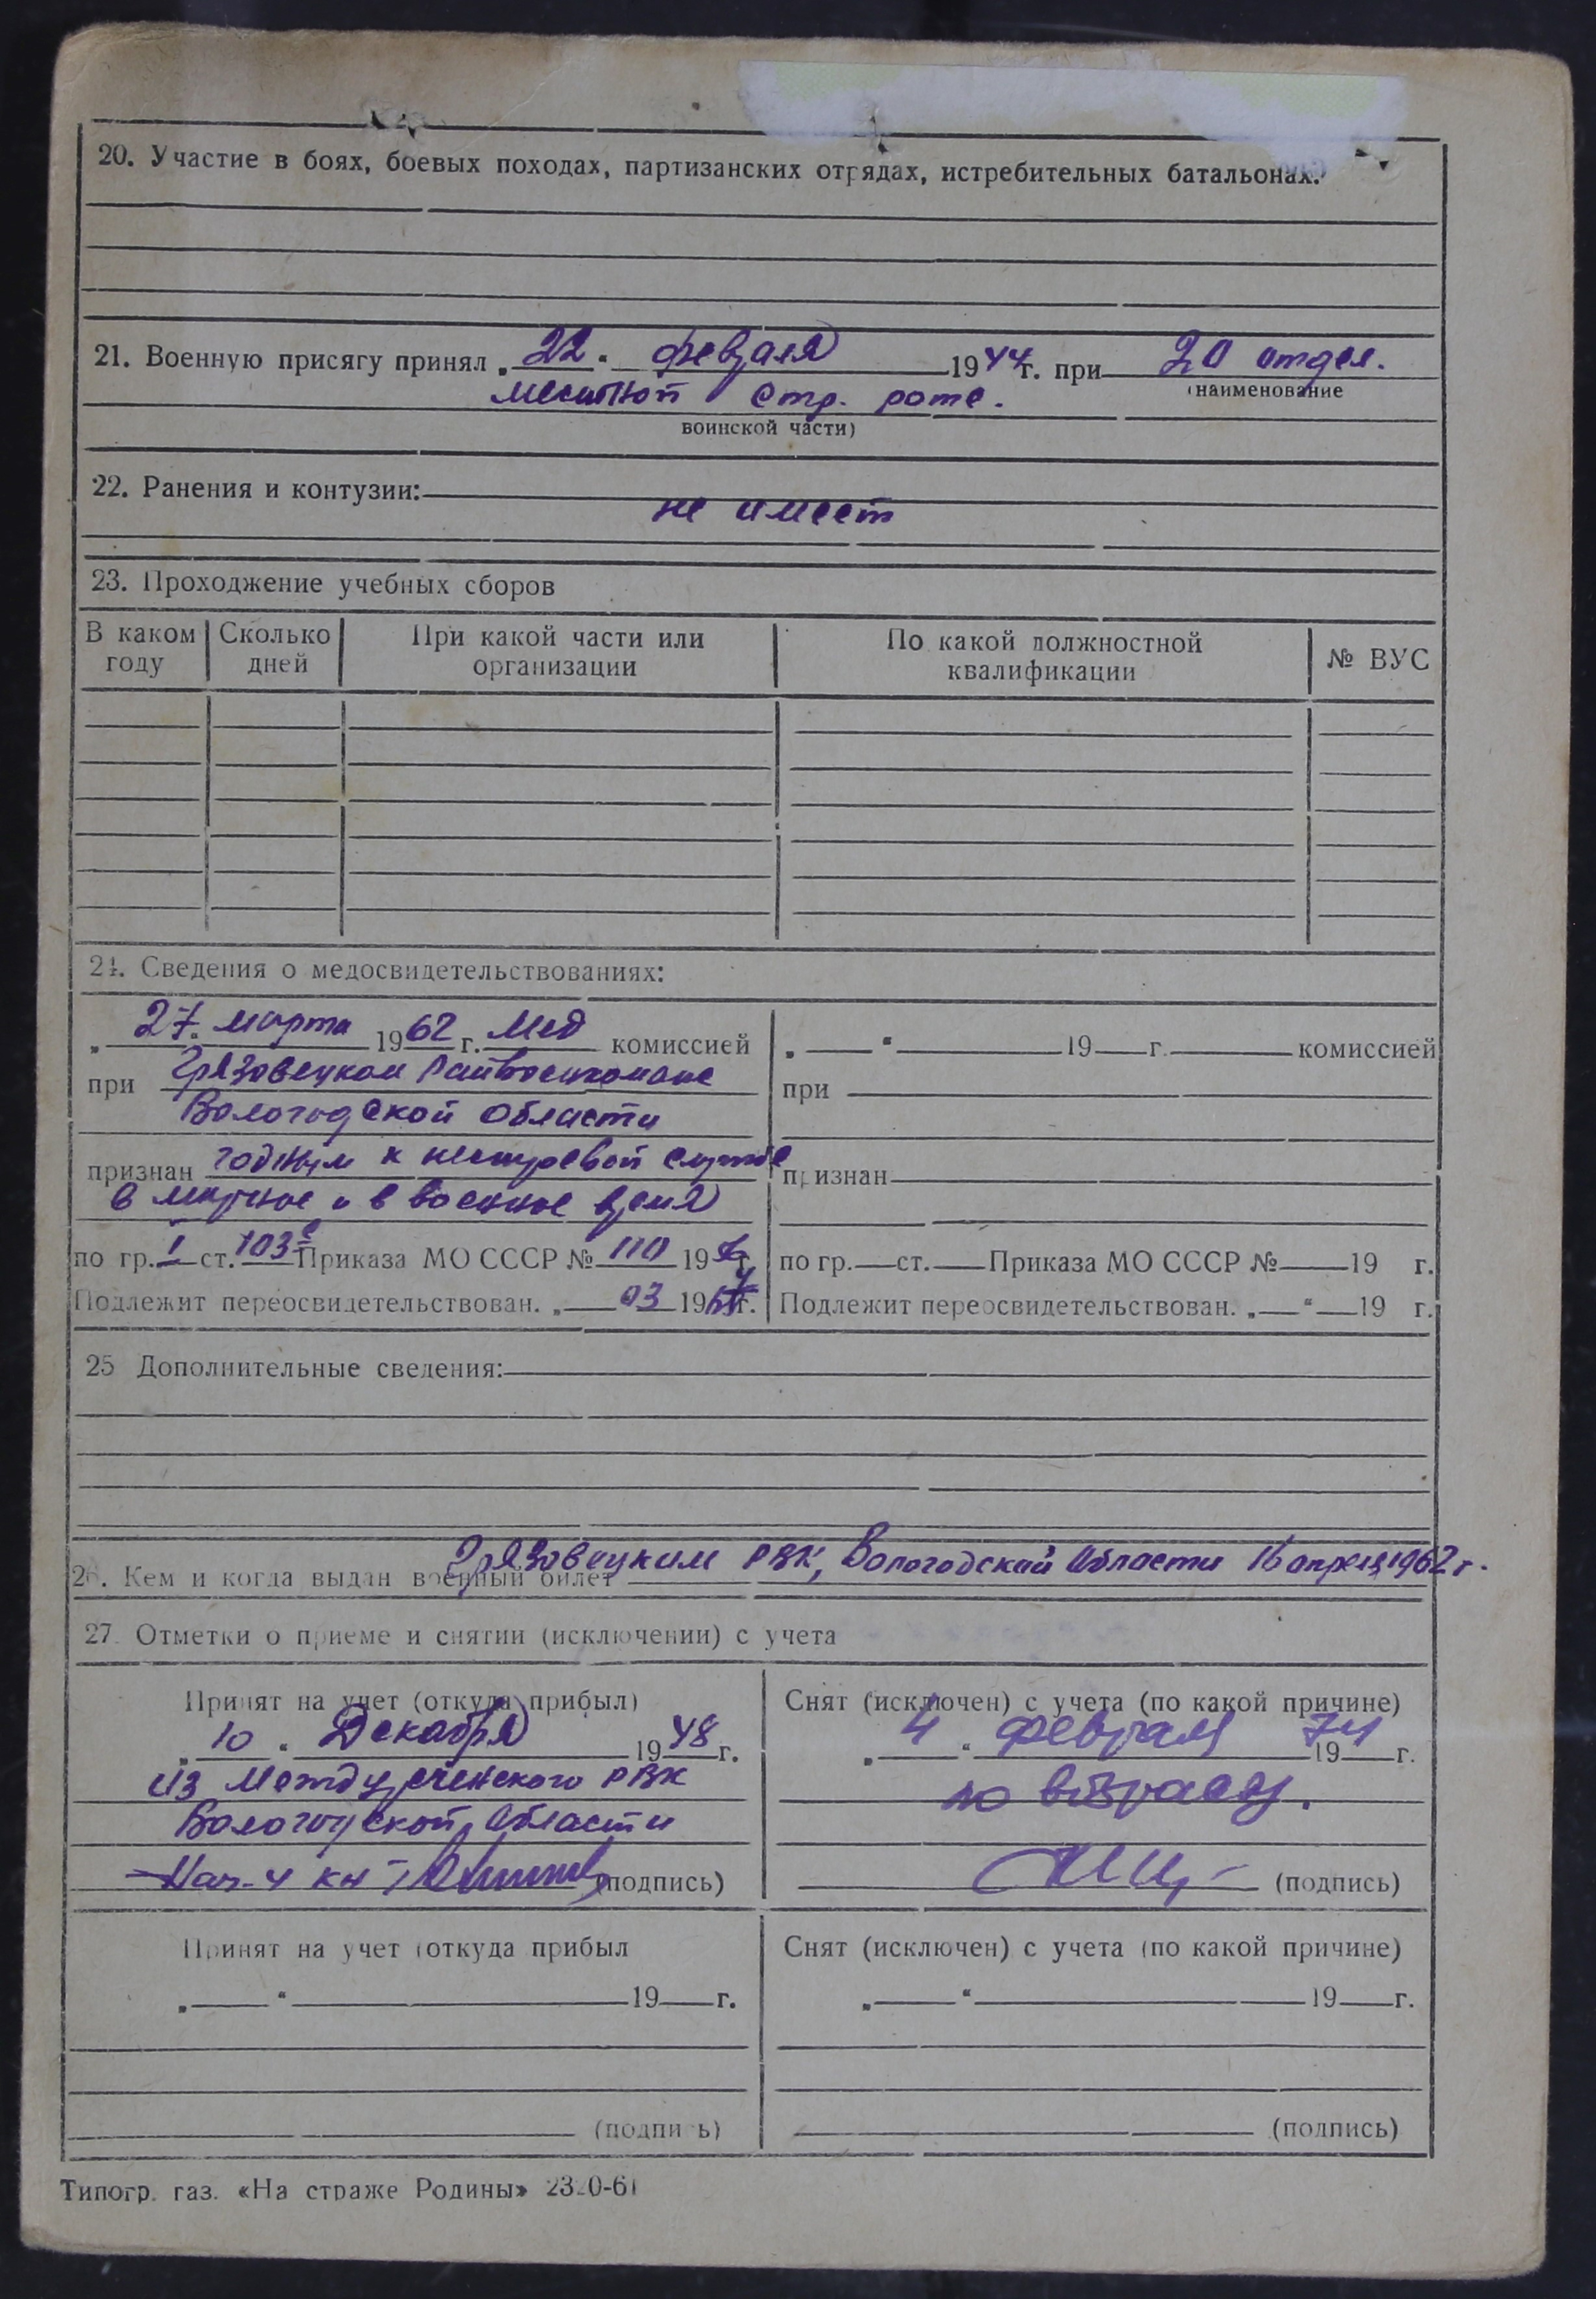 20. Участие в боях, боевых походах, партизанских отрядах, истребительных батальонах.
21. Военную присягу принял „22“ февраля 1944 г. при 20 отдел.
(наименование
местной стр. роте.
воинской части)
22. Ранения и контузии:
не имеет
23. Прохождение учебных сборов
В каком году Сколько дней При какой части или организации По какой должностной квалификации № ВУС
24. Сведения о медосвидетельствованиях:
„27“ марта 1962 г. Мед комиссией
при Грязовецком Райвоенкомате
Вологодской области
признан годным к нестроевой службе
в мирное и в военное время
по гр. I ст. 103 Приказа МО СССР № 110 19 г.
Подлежит переосвидетельствован. „ 03 19 г.
„ “ 19 г. комиссией
при
признан
по гр. ст. Приказа МО СССР № 19 г.
Подлежит переосвидетельствован. „ “ 19 г.
25 Дополнительные сведения:
26. Кем и когда выдан военный билет Грязовецким РВК, Вологодской области 16 апреля 1962 г.
27. Отметки о приеме и снятии (исключении) с учета
Принят на учет (откуда прибыл)
„10“ Декабря 1948 г.
из Междуреченского РВК
Вологодской области
Нач-4
(подпись)
Снят (исключен) с учета (по какой причине)
„4“ февраля 1974 г.
по возрасту.
(подпись)
Принят на учет (откуда прибыл
„ “ 19 г.
(подпись)
Снят (исключен) с учета (по какой причине)
„ “ 19 г.
(подпись)
Типогр. газ. «На страже Родины» 23 0-61